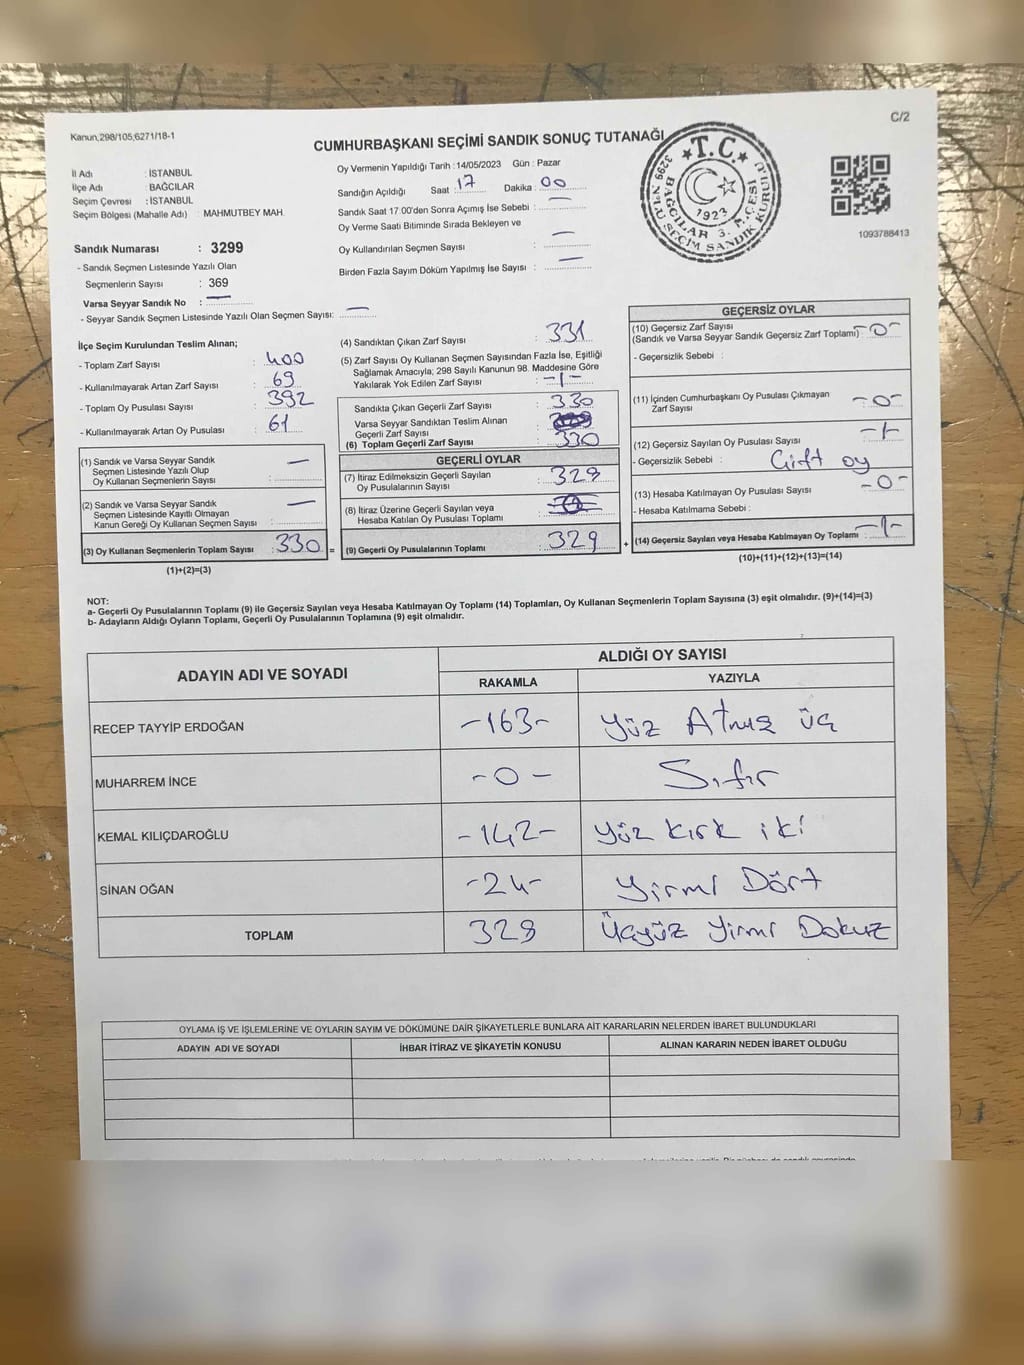 Kanun,298/105,6271/18-1
C/2
CUMHURBAŞKANI SEÇİMİ SANDIK SONUÇ TUTANAĞI
İl Adı : İSTANBUL
İlçe Adı : BAĞCILAR
Seçim Çevresi : İSTANBUL
Seçim Bölgesi (Mahalle Adı) : MAHMUTBEY MAH.
Sandık Numarası : 3299
- Sandık Seçmen Listesinde Yazılı Olan
Seçmenlerin Sayısı : 369
Varsa Seyyar Sandık No : —
- Seyyar Sandık Seçmen Listesinde Yazılı Olan Seçmen Sayısı: —
Oy Vermenin Yapıldığı Tarih :14/05/2023 Gün : Pazar
Sandığın Açıldığı Saat : 17 Dakika : 00
Sandık Saat 17:00'den Sonra Açımış İse Sebebi : —
Oy Verme Saati Bitiminde Sırada Bekleyen ve
Oy Kullandırılan Seçmen Sayısı : —
Birden Fazla Sayım Döküm Yapılmış İse Sayısı : —
★T.C.★
1923
BAĞCILAR 3. İLÇESİ
3299 NOLU SEÇİM SANDIK KURULU
1093788413
İlçe Seçim Kurulundan Teslim Alınan;
- Toplam Zarf Sayısı : 400
- Kullanılmayarak Artan Zarf Sayısı : 69
- Toplam Oy Pusulası Sayısı : 392
- Kullanılmayarak Artan Oy Pusulası : 61
(1) Sandık ve Varsa Seyyar Sandık
Seçmen Listesinde Yazılı Olup
Oy Kullanan Seçmenlerin Sayısı : —
(2) Sandık ve Varsa Seyyar Sandık
Seçmen Listesinde Kayıtlı Olmayan
Kanun Gereği Oy Kullanan Seçmen Sayısı : —
(3) Oy Kullanan Seçmenlerin Toplam Sayısı : 330 =
(1)+(2)=(3)
(4) Sandıktan Çıkan Zarf Sayısı : 331
(5) Zarf Sayısı Oy Kullanan Seçmen Sayısından Fazla İse, Eşitliği
Sağlamak Amacıyla; 298 Sayılı Kanunun 98. Maddesine Göre
Yakılarak Yok Edilen Zarf Sayısı : -1-
Sandıkta Çıkan Geçerli Zarf Sayısı : 330
Varsa Seyyar Sandıktan Teslim Alınan
Geçerli Zarf Sayısı :
(6) Toplam Geçerli Zarf Sayısı : 330
GEÇERLİ OYLAR
(7) İtiraz Edilmeksizin Geçerli Sayılan
Oy Pusulalarının Sayısı : 329
(8) İtiraz Üzerine Geçerli Sayılan veya
Hesaba Katılan Oy Pusulası Toplamı :
(9) Geçerli Oy Pusulalarının Toplamı : 329 +
GEÇERSİZ OYLAR
(10) Geçersiz Zarf Sayısı
(Sandık ve Varsa Seyyar Sandık Geçersiz Zarf Toplamı) -0-
- Geçersizlik Sebebi :
(11) İçinden Cumhurbaşkanı Oy Pusulası Çıkmayan
Zarf Sayısı -0-
(12) Geçersiz Sayılan Oy Pusulası Sayısı -1-
- Geçersizlik Sebebi : Çift oy
(13) Hesaba Katılmayan Oy Pusulası Sayısı -0-
- Hesaba Katılmama Sebebi :
(14) Geçersiz Sayılan veya Hesaba Katılmayan Oy Toplamı -1-
(10)+(11)+(12)+(13)=(14)
NOT:
a- Geçerli Oy Pusulalarının Toplamı (9) ile Geçersiz Sayılan veya Hesaba Katılmayan Oy Toplamı (14) Toplamları, Oy Kullanan Seçmenlerin Toplam Sayısına (3) eşit olmalıdır. (9)+(14)=(3)
b- Adayların Aldığı Oyların Toplamı, Geçerli Oy Pusulalarının Toplamına (9) eşit olmalıdır.
ADAYIN ADI VE SOYADI
ALDIĞI OY SAYISI
RAKAMLA YAZIYLA
RECEP TAYYİP ERDOĞAN -163- Yüz Atmış üç
MUHARREM İNCE -0- Sıfır
KEMAL KILIÇDAROĞLU -142- Yüz kırk iki
SİNAN OĞAN -24- Yirmi Dört
TOPLAM 329 Üçyüz Yirmi Dokuz
OYLAMA İŞ VE İŞLEMLERİNE VE OYLARIN SAYIM VE DÖKÜMÜNE DAİR ŞİKAYETLERLE BUNLARA AİT KARARLARIN NELERDEN İBARET BULUNDUKLARI
ADAYIN ADI VE SOYADI İHBAR İTİRAZ VE ŞİKAYETİN KONUSU ALINAN KARARIN NEDEN İBARET OLDUĞU